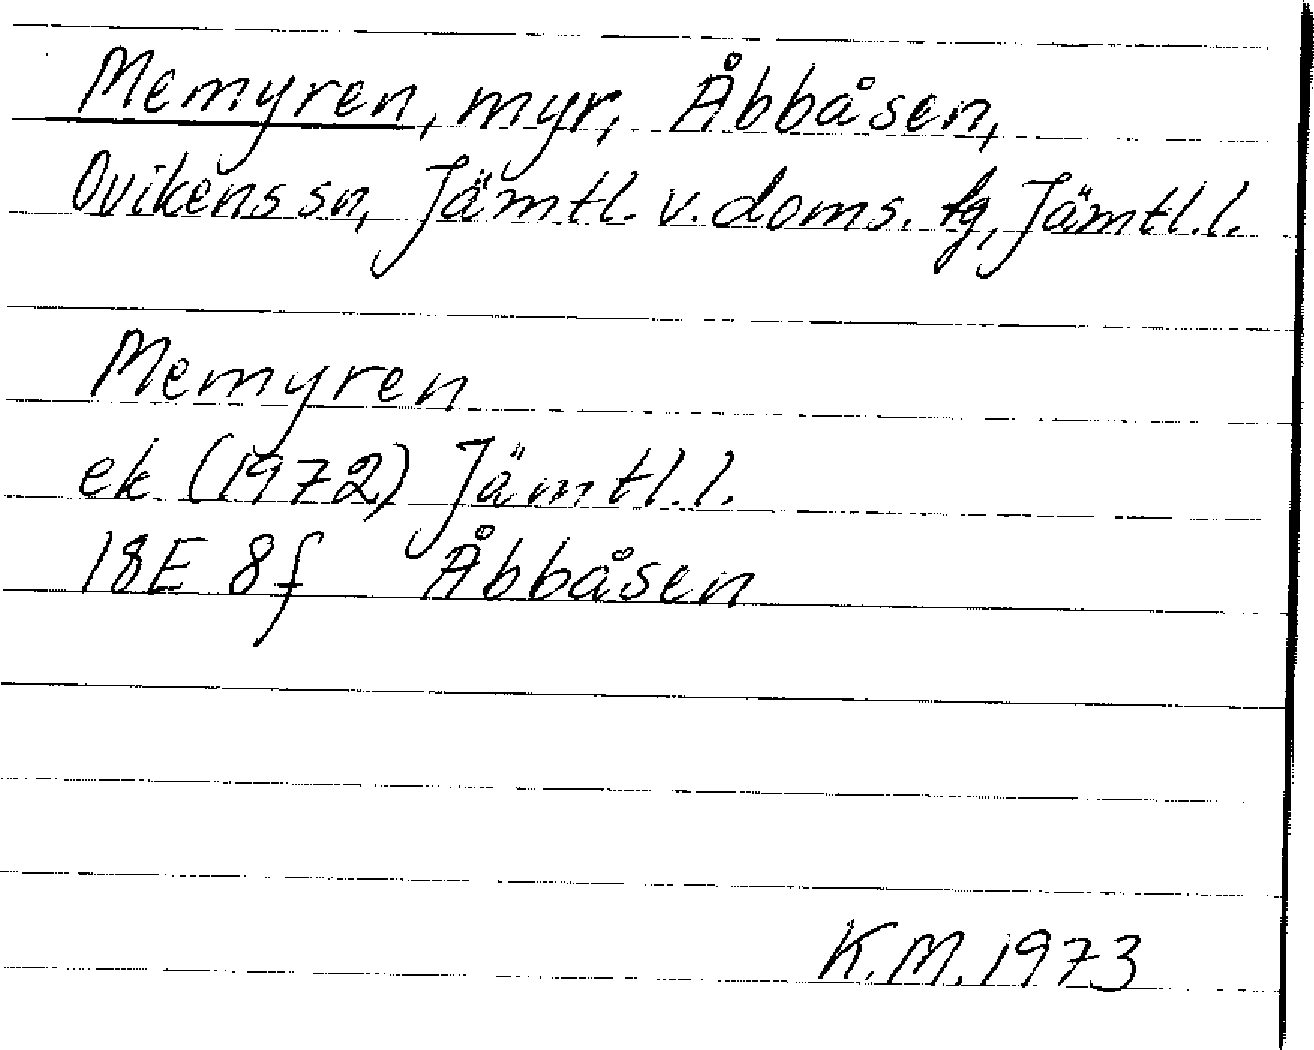 Memyren, myr, Åbbåsen,
Ovikens sn, Jämtl. v. doms. tg, Jämtl. l.
Memyren
ek (1972) Jämtl. l.
18E 8f Åbbåsen
K.M. 1973